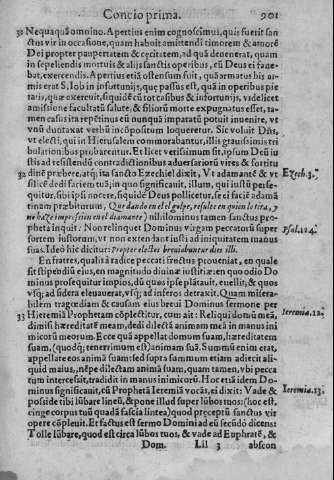 Concio prima. 901
32 Nequaquã omnino. Apertius enim cognoscimus, quis fuerit san
ctus vir in occasione, quam habuit amittendi timorem & amorẽ
Dei propter paupertatem & cęcitatem, ad quã deuenerat, quam
in sepeliendis mortuis & alijs sanctis operibus, cũ Deus ei faue-
bat, exercendis. Apertius etiã ostensum fuit, quã armatus his ar-
mis erat S. Iob in infortunijs, quę passus est, quã in operibus pie
tatis, quæ exercuit, siquidẽ cũ tot casibus & infortunijs, videlicet
amissione facultatũ salute, & filiorũ morte expugnatus esset, ta-
men casus ita repẽtinus eũ nunquã impatatũ potuit inuenire, vt
vnũ duntaxat verbũ incõpositum loqueretur. Sic voluit Dñs,
vt electi, qui in Hierusalem commorabantur, illis grauissimis tri
bulationibus probarentur. Et licet verissimum sit, ipsum Deũ iu
stis ad resistendũ contradictionibus aduersariorũ vires & fortitu
32 dinẽ præbere, atq; ita sancto Ezechiel dixit, Vt adamantẽ & vt Ezech. 3.
silicẽ dedi faciem tuã, in quo significauit, illum, qui iustũ perse-
quitur, sibi ipsi nocere, siquidẽ Deus pollicetur, se ei faciẽ adamã
tinam præbiturum, Que dando en el golpe, resulte en quien le tira, y
no haze impression en el diamante) nihilominus tamen sanctus pro-
pheta inquit: Non relinquet Dominus virgam peccatorũ super Psal. 124.
sortem iustorũ, vt non extendant iusti ad iniquitatem manus
suas. Ideò hic dicitur: Propter electos breuiabuntur dies illi.
En fratres, qualis à radice peccati fructus proueniat, en quale
sit stipendiũ eius, en magnitudo diuinæ iustitiæ: en quo odio Do
minus prosequitur impios, dũ quos ipse plãtauit, euellit; & quos
vsq; ad sidera eleuauerat, vsq; ad inferos detraxit. Quam misera-
bilem tragœdiam & causam eius breui Dominus sermone per
33 Hieremiã Prophetam cõplectitur, cum ait: Reliqui domũ meã, Ieremia. 12.
dimisi hæreditatẽ meam, dedi dilectã animam meã in manus ini
micorũ meorum. Ecce quã appellat domum suam, hæreditatem
suam, (quodq; tenerrimum est) animam suã. Summũ enim erat,
appellare eos animã suam: sed supra summum etiam adiecit ali-
quid maius, nẽpe dilectam animã suam, quam tamen, vbi pecca
tum intercessit, tradidit in manus inimicorũ. Hoc etiã idem Do-
minus significauit, cũ Prophetã Ieremiã vocãs, ei dixit: Vade & Ieremia. 13.
posside tibi lũbare lineũ, & pone illud super lũbos tuos: (hoc est,
cinge corpus tuũ quadã fascia lintea) quod pręceptũ sanctus vir
opere cõpleuit. Et factus est sermo Domini ad eũ secũdò dicens:
Tolle lũbare, quod est circa lũbos tuos, & vade ad Euphratẽ, &
Dom. Lll 3 abscon